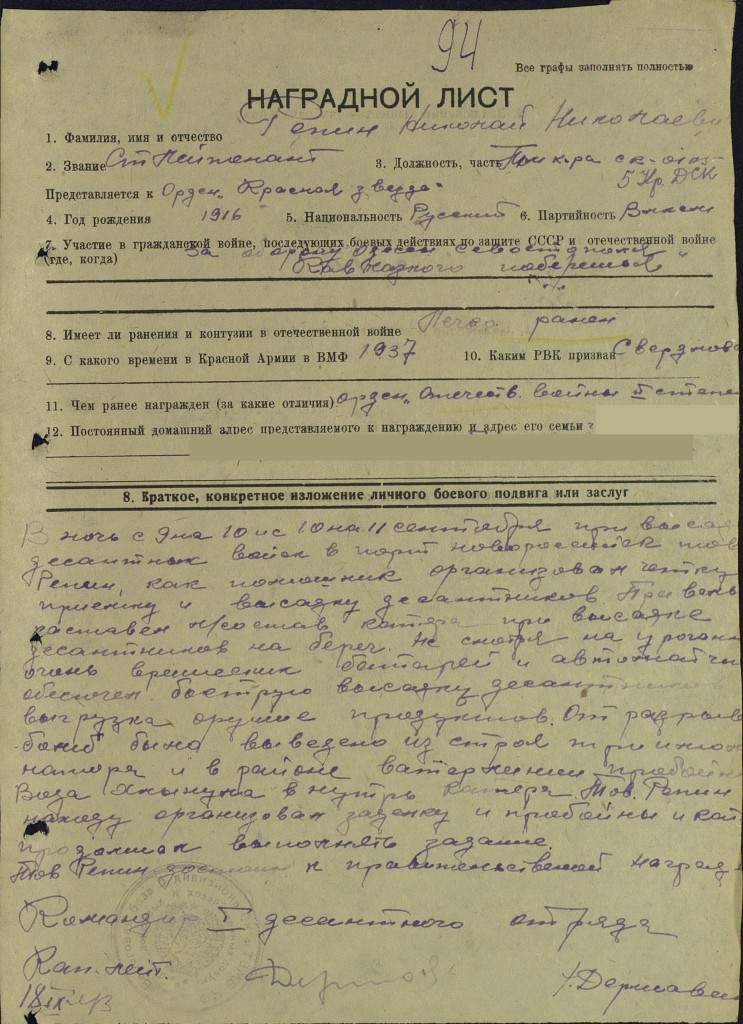 94
Все графы заполнять полностью
НАГРАДНОЙ ЛИСТ
1. Фамилия, имя и отчество Репин Николай Николаевич
2. Звание Ст Лейтенант 3. Должность, часть Пом к-ра ск-
5 Кр. ДСК
Представляется к Орден „Красная звезда"
4. Год рождения 1916 5. Национальность Русский 6. Партийность
7. Участие в гражданской войне, последующих боевых действиях по защите СССР и отечественной войне
(где, когда) За оборону Одессы Севастополя
Кавказского побережья
8. Имеет ли ранения и контузии в отечественной войне Легко ранен
9. С какого времени в Красной Армии в ВМФ 1937 10. Каким РВК призван
11. Чем ранее награжден (за какие отличия) орден „Отечеств. войны II степе
12. Постоянный домашний адрес представляемого к награждению и адрес его семьи
8. Краткое, конкретное изложение личного боевого подвига или заслуг
В ночь с 9 на 10 и с 10 на 11 сентября при высад
десантных войск в порт новороссийск тов
Репин, как помошник организовал четкую
приемку и высадку десантников.
л/состав катера при высадке
десантников на берег. Не смотря на ураганн
огонь вражеских батарей и автоматчик
обеспечил быструю высадку десантников
выгрузка оружие продуктов. От разрыва
бомб было выведено из строя три
мотора и в районе ватерлинии пробойн
Вода хлынула в нутрь катера Тов. Репин
находу организовал заделку и пробойны и кат
продолжал выполнять задание.
Тов Репин достоин к правительственной наград
Командир I десантного отряда
Кап. лейт. /Державин
18 IX 43